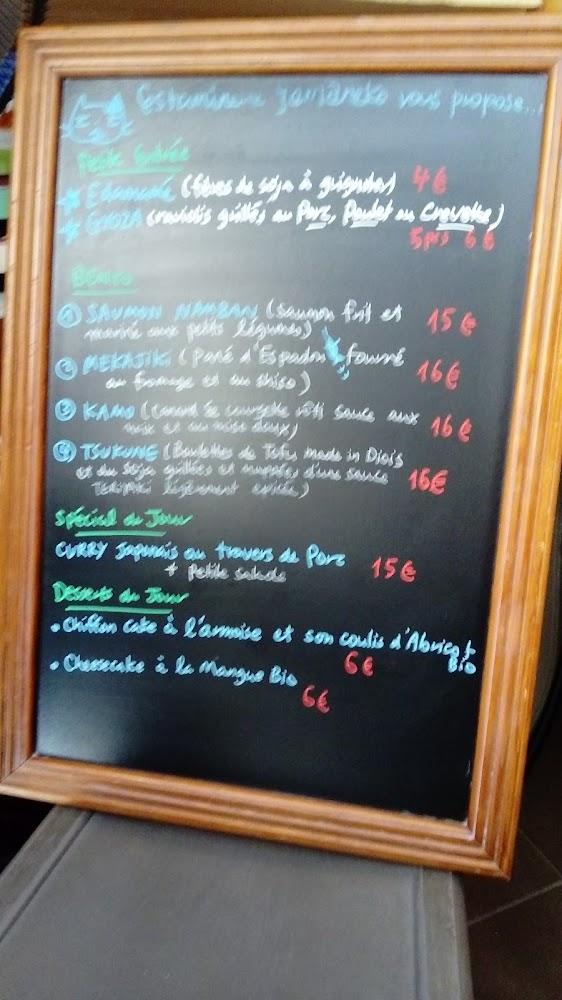 vous propose...
Petite Entrée
Edamamé (fèves de soja à grignoter) 4€
GYOZA (raviolis grillés au Porc, Poulet ou Crevette)
5pcs 6€
BENTO
① SAUMON NAMBAN (Saumon frit et 15€
mariné aux petits légumes)
② MEKAJIKI (Pané d'Espadon fourré 16€
au fromage et au shiso)
③ KAMO (canard & courgette rôti sauce aux 16€
et au miso doux)
④ TSUKUNE (Boulettes de Tofu made in Diois
et du soja grillées et nappées d'une sauce 16€
TERIYAKI légèrement épicée)
Spécial du Jour
CURRY Japonais au travers de Porc 15€
+ petite salade
Desserts du Jour
• Chiffon cake à l'armoise et son coulis d'Abricot
Bio
6€
• Cheesecake à la Mangue Bio
6€